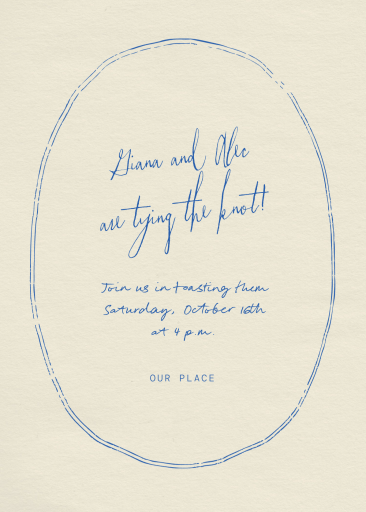 Giana and Alec
are tying the knot!
Join us in toasting them
Saturday, October 16th
at 4 p.m.
OUR PLACE